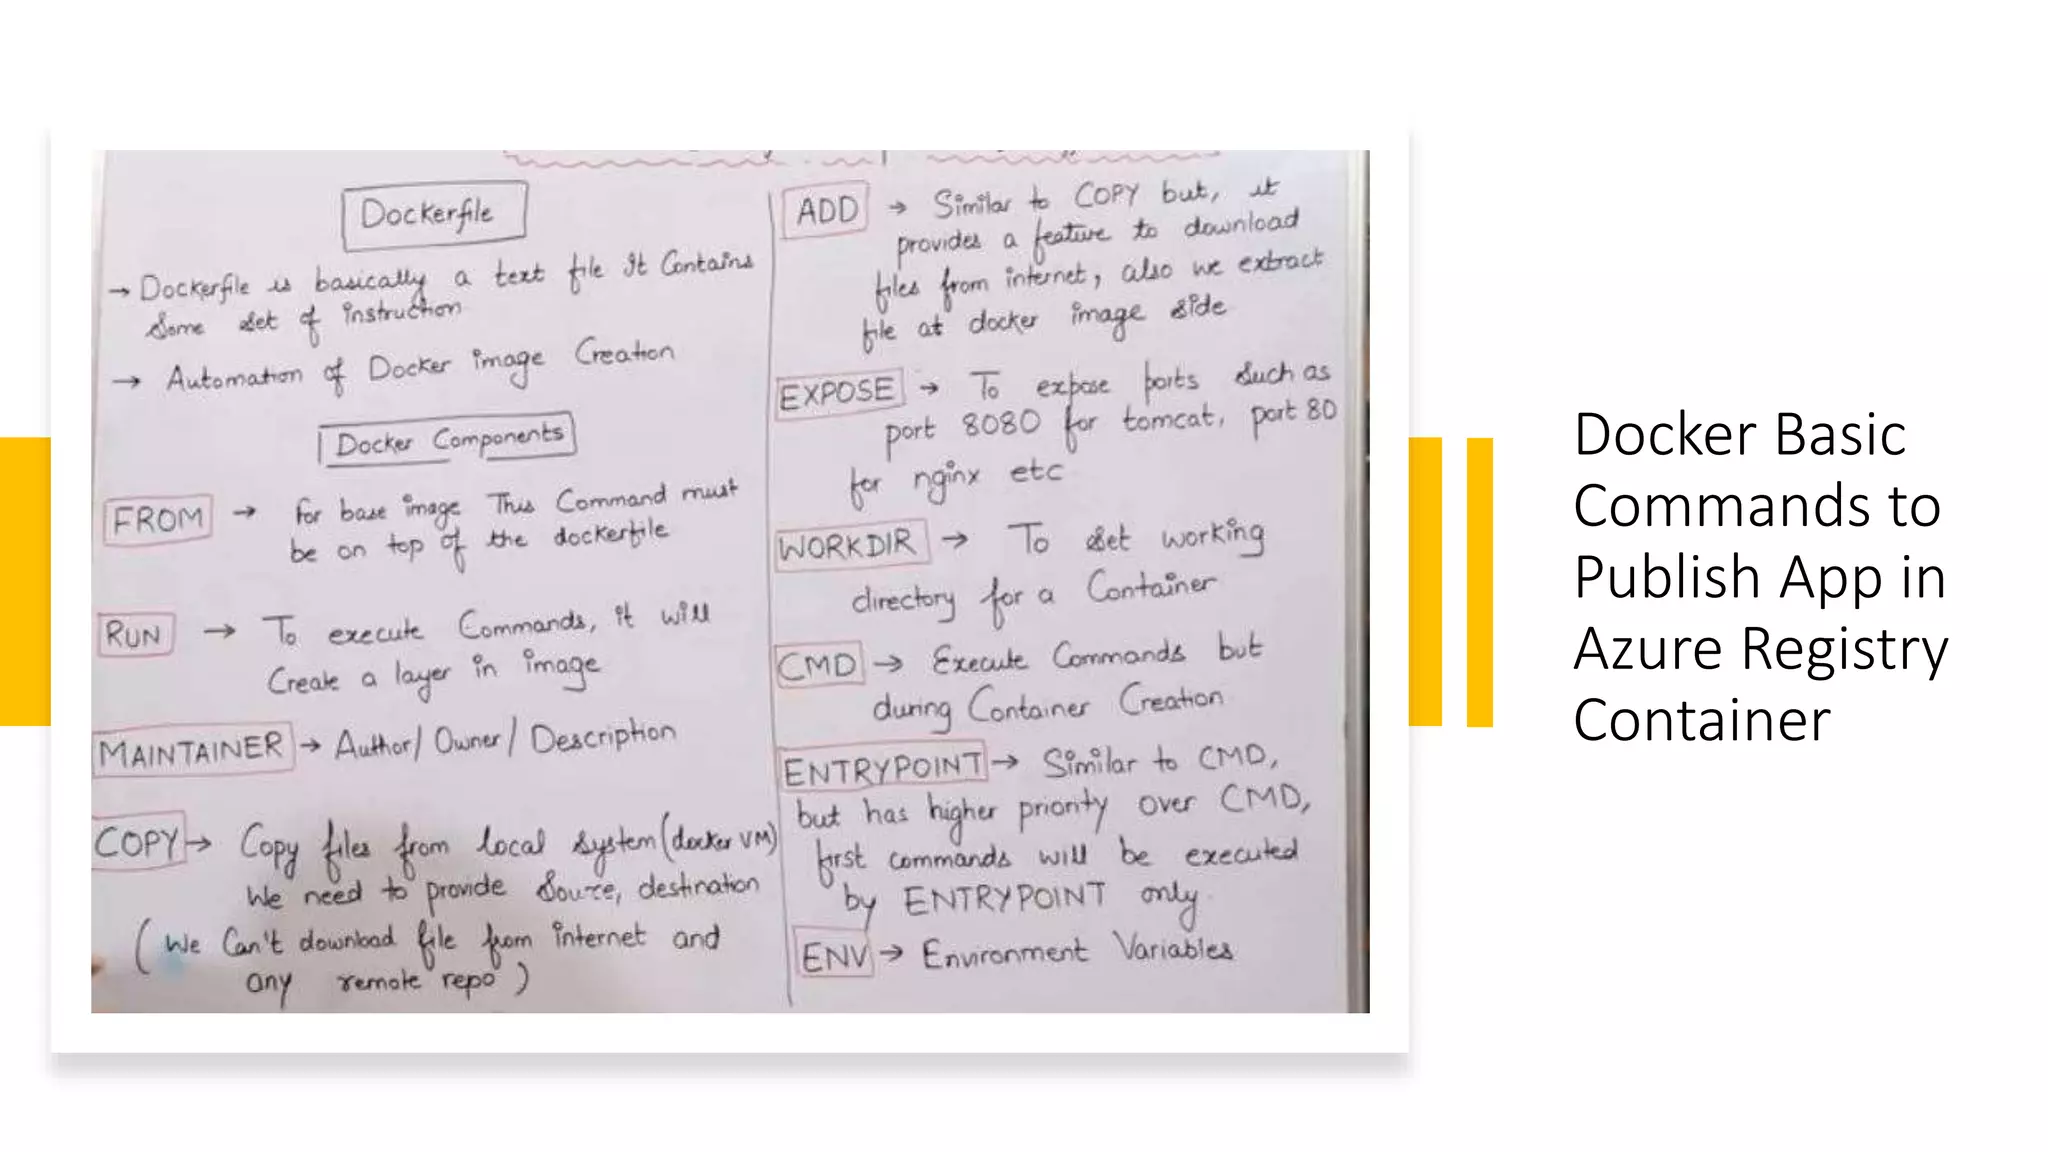 Dockerfile
→ Dockerfile is basically a text file It Contains
Some set of instruction
→ Automation of Docker image Creation
Docker Components
FROM → for base image This Command must
be on top of the dockerfile
RUN → To execute Commands, it will
Create a layer in image
MAINTAINER → Author/ Owner/ Description
COPY → Copy files from local system (docker VM)
We need to provide Source, destination
(We Can't download file from internet and
any remote repo)
ADD → Similar to COPY but, it
provides a feature to download
files from internet, also we extract
file at docker image side
EXPOSE → To expose ports such as
port 8080 for tomcat, port 80
for nginx etc
WORKDIR → To set working
directory for a Container
CMD → Execute Commands but
during Container Creation
ENTRYPOINT → Similar to CMD,
but has higher priority over CMD,
first commands will be executed
by ENTRYPOINT only.
ENV → Environment Variables
Docker Basic
Commands to
Publish App in
Azure Registry
Container